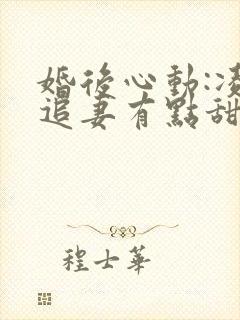 婚後心動:凌
追妻有點甜
程士華